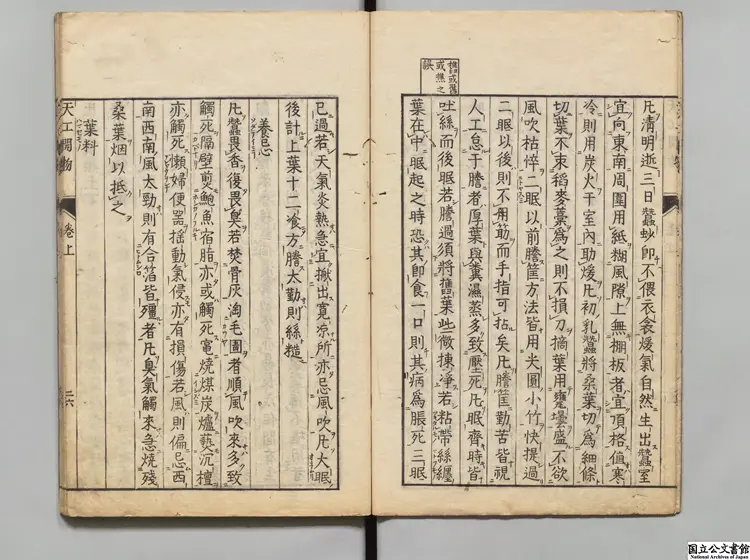 凡清明逝三日蠶𧉻即不偎衣衾煖氣自然生出蠶室
宜向東南周圍用紙糊風隙上無棚板者宜頂格値寒
冷則用炭火于室內助煖凡初乳蠶將桑葉切為細條
切葉不束稻麥藁為之則不損刀摘葉用甕罈盛不欲
風吹枯悴二眠以前謄筐方法皆用尖圓小竹快提過
二眠以後則不用筯而手指可拈矣凡謄筐勤苦皆視
人工怠于謄者厚葉與糞濕蒸多致壓死凡眠齊時皆
吐絲而後眠若謄過須將舊葉些微揀淨若粘帶絲纏
葉在中眠起之時恐其即食一口則其病為脹死三眠
已過若天氣炎熱急宜搬出寬凉所亦忌風吹凡大眠
後計上葉十二飡方謄太勤則絲糙
養忌
凡蠶畏香復畏臭若焚骨灰淘毛圊者順風吹來多致
觸死隔壁煎鮑魚宿脂亦或觸死竈燒煤炭爐爇沉檀
亦觸死懶婦便器揺動氣侵亦有損傷若風則偏忌西
南西南風太勁則有合箔皆殭者凡臭氣觸來急燒殘
桑葉烟以抵之
葉料
天工開物
卷上
二六
国立公文書館
National Archives of Japan